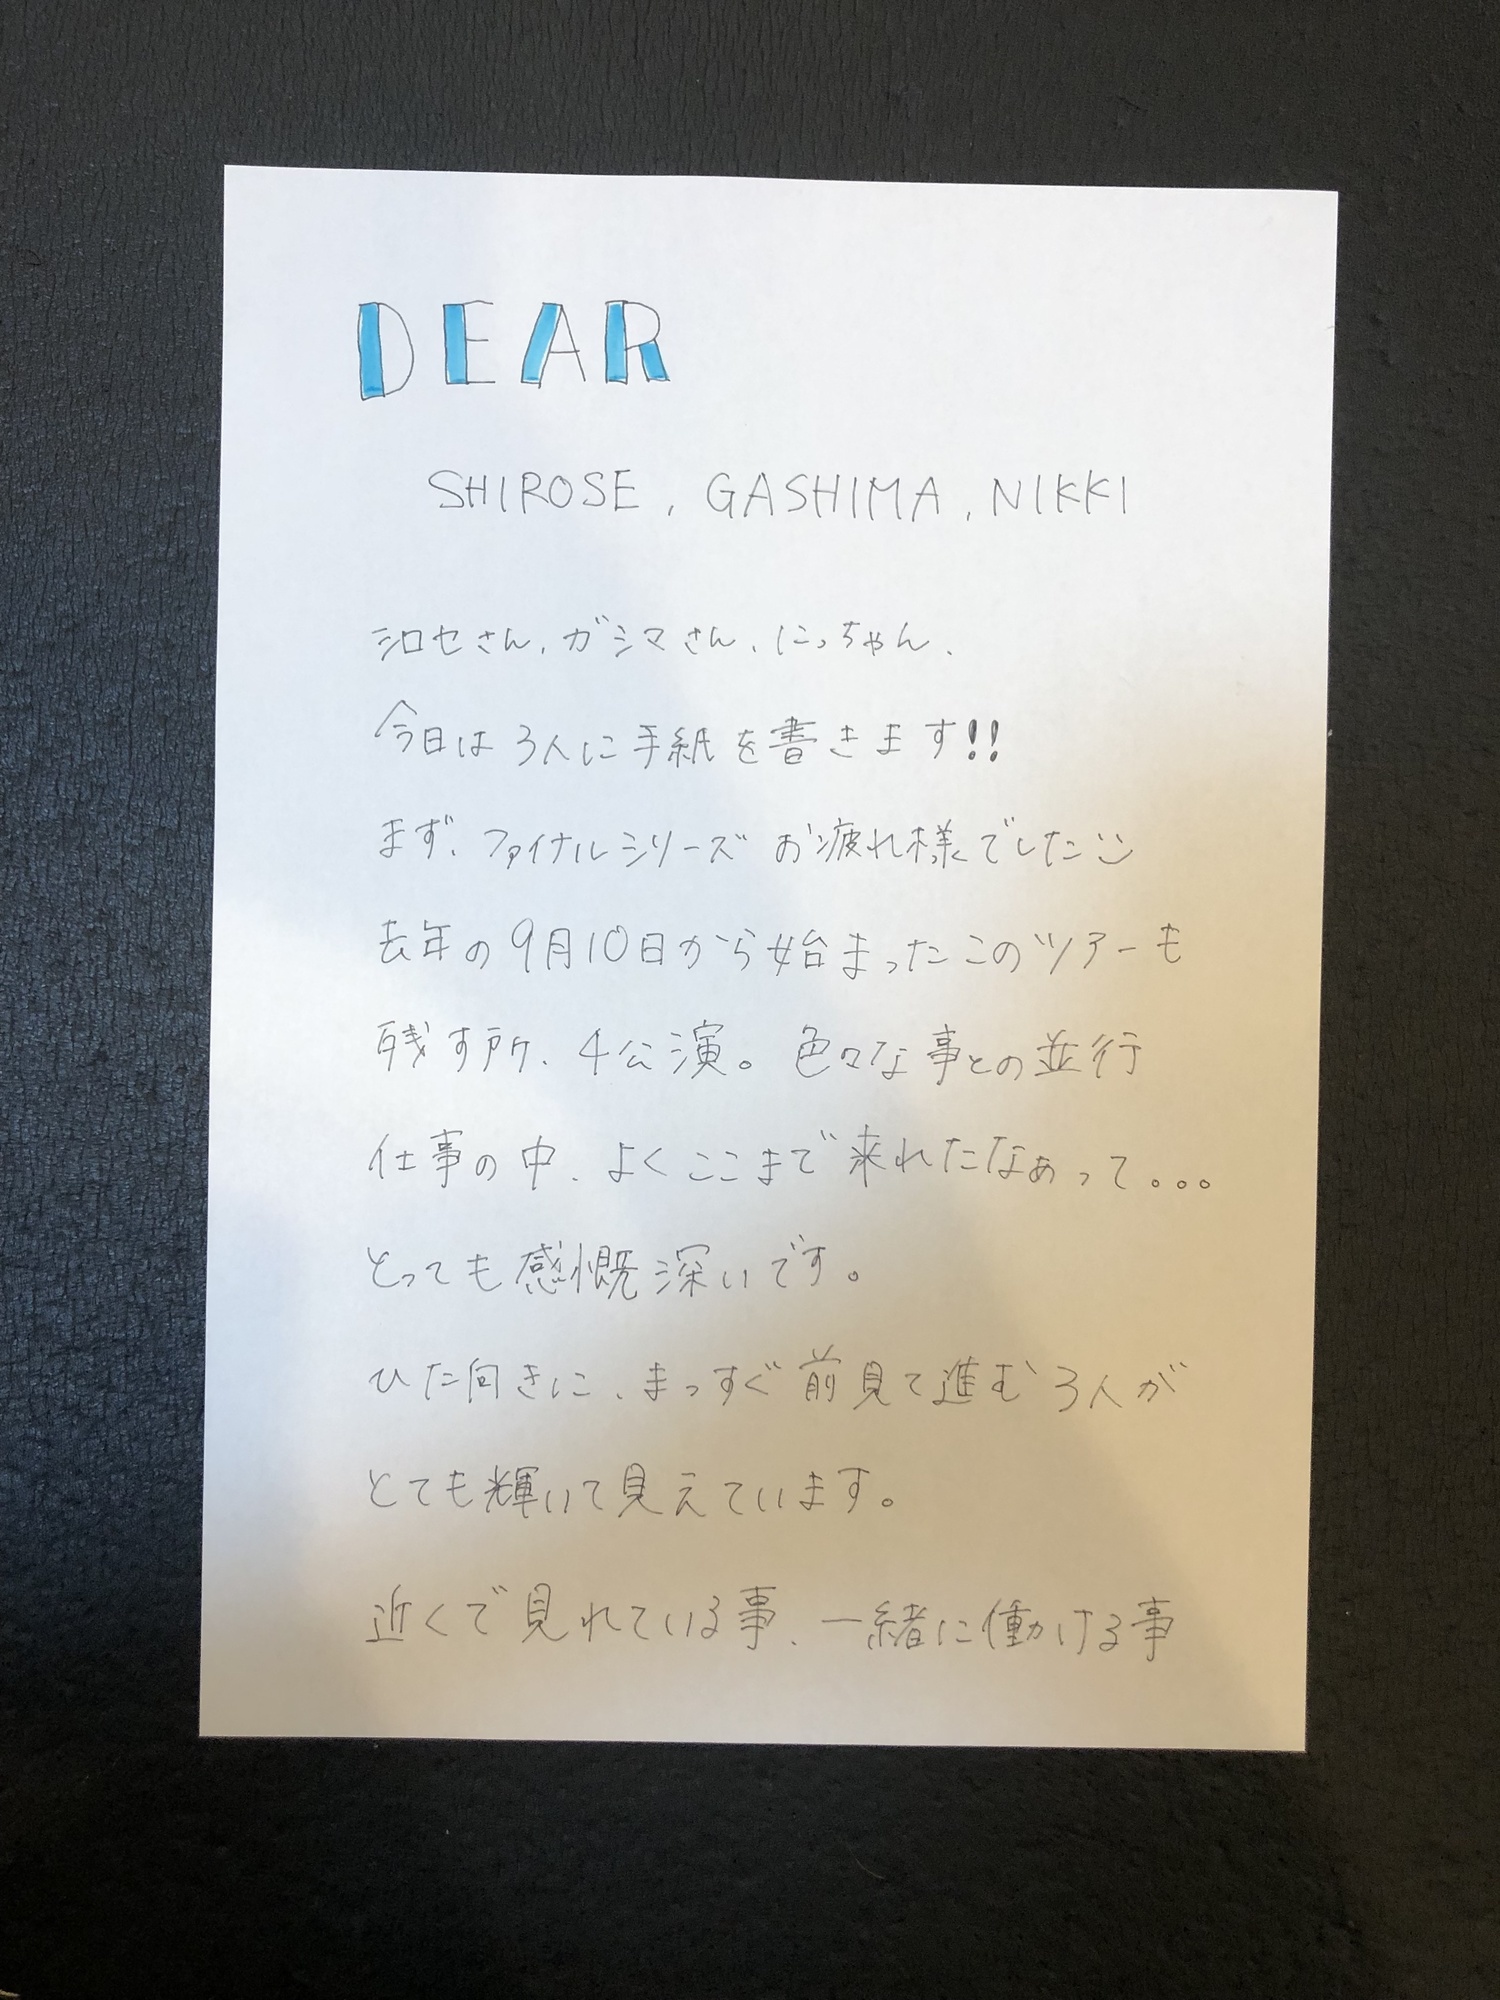 DEAR
SHIROSE, GASHIMA, NIKKI
シロセさん、ガシマさん、にっちゃん、
今日は3人に手紙を書きます!!
まず、ファイナルシリーズお疲れ様でした
去年の9月10日から始まったこのツアーも
残す所、4公演。色々な事との並行
仕事の中、よくここまで来れたなぁって。。。
とっても感慨深いです。
ひた向きに、まっすぐ前見て進む3人が
とても輝いて見えています。
近くで見れている事、一緒に働ける事